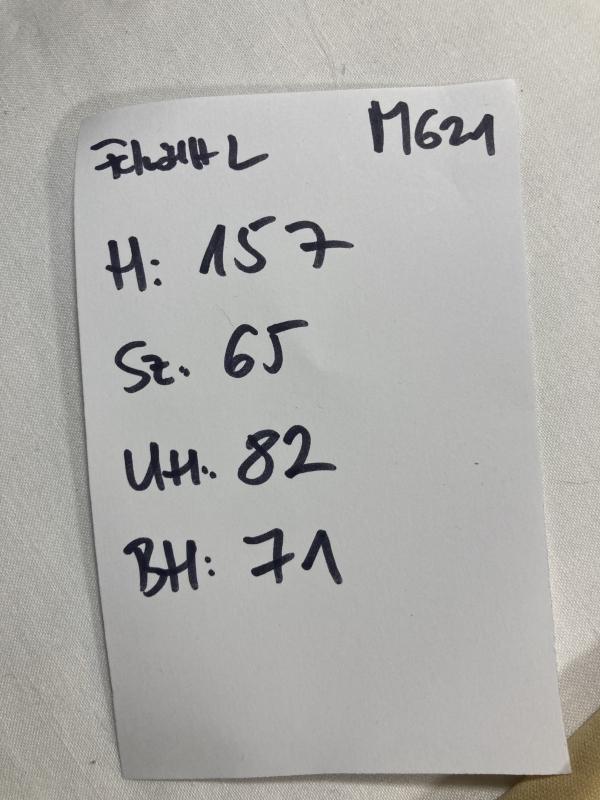 M621
H: 157
Sz. 65
UH: 82
BH: 71